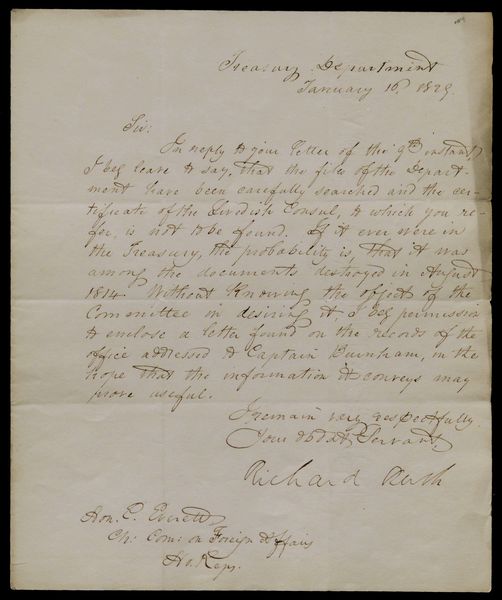 Treasury Department
January 16. 1829.
Sir:
In reply to your letter of the 9th instant,
I beg leave to say, that the files of the Depart-
ment have been carefully searched and the cer-
tificate of the Swedish Consul, to which you re-
fer, is not to be found. If it ever were in
the Treasury, the probability is, that it was
among the documents destroyed in August
1814. Without knowing the object of the
Committee in desiring it, I beg permission
to enclose a letter found on the records of the
office addressed to Captain Burnham, in the
hope that the information it conveys may
prove useful.
I remain very respectfully
Your obdat Servant,
Richard Rush
Hon. E. Everett
Ch: Com: on Foreign Affairs
Ho. Reps.